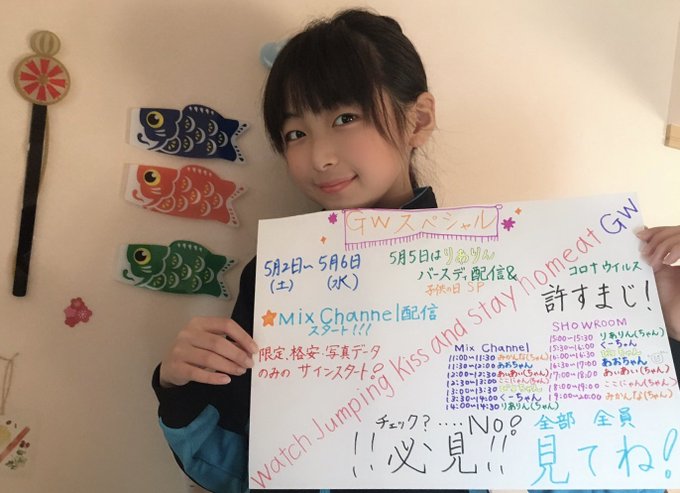 GWスペシャル
5月2日〜5月6日
(土) (水)
5月5日はりありん
バースデイ配信&
子供の日 SP
コロナウイルス
許すまじ!
Mix Channel配信
スタート!!!
限定、格安・写真データ
のみの サインスタート!
watch Jumping kiss and stay home at GW
Mix Channel
11:00〜11:30 みかんな(ちゃん)
11:30〜12:00 あおちゃん
12:00〜12:30 あぃあぃ(ちゃん)
12:30〜13:00 ここにゃん(ちゃん)
13:00〜13:30
13:30〜14:00 くーちゃん
14:00〜14:30 りありん(ちゃん)
SHOWROOM
15:00〜15:30 りありん(ちゃん)
15:30〜16:00 くーちゃん
16:00〜16:30
16:30〜17:00 あおちゃん
17:00〜18:00 あぃあぃ(ちゃん)
18:00〜19:00 ここにゃん(ちゃん)
19:00〜20:00 みかんな(ちゃん)
チェック?‥‥No!
!!必見!!
全部 全員
見てね!